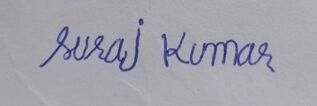 suraj kumar